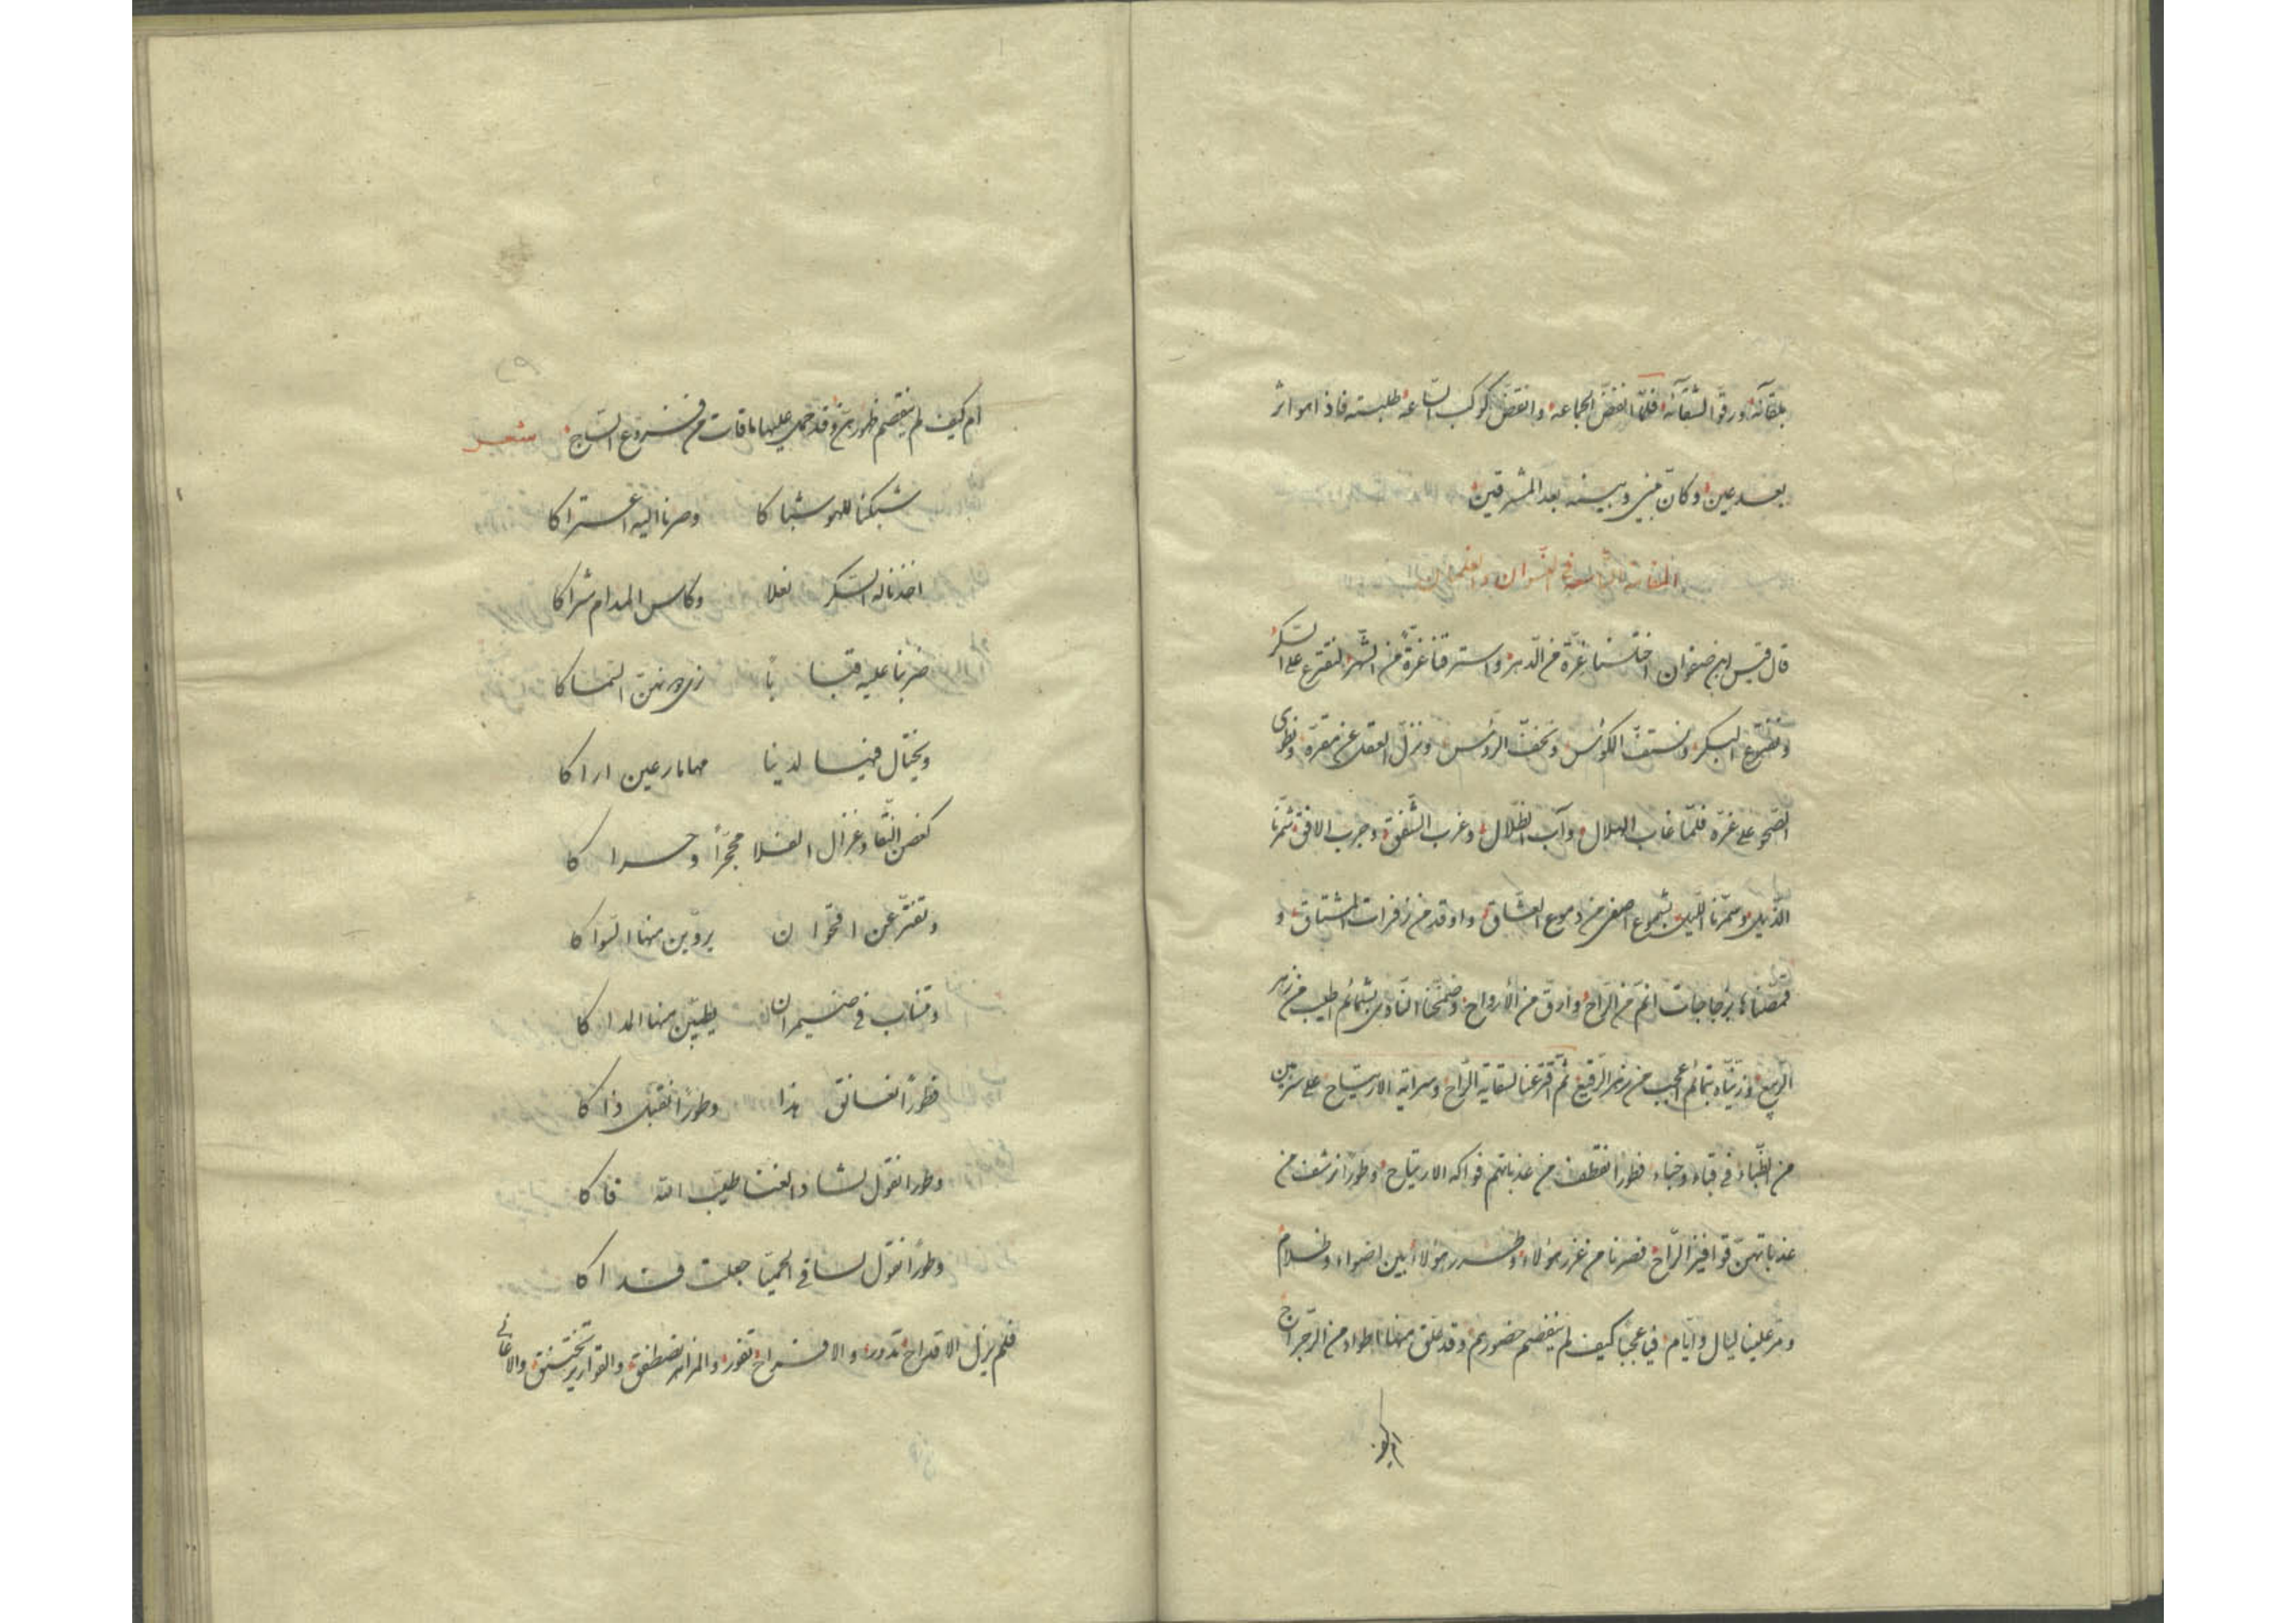 بلقآئه ورقوا لشقآئه فلمّا انفضّ الجماعه وانقضّ كوكب السّاعه طلبته فاذا هو اثر
بعد عين وكان بيني وبينه بعد المشرقين
المقامة في النسوان والغلمان
قال قيس ابن صفوان اختلسنا غرّة من الدّهر واسترقنا غرّة من الشّهر لنقترع على السكر
ونفترع البكر ونستفّ الكؤس ونخفّ الرؤس ونزل العقل عن مقرّه ونطوى
الصّحو على غرّه فلمّا غاب الهلال وآب الظّلال وغرب الشّفق وجرب الافق شمّرنا
الذّيل وسمّرنا اللّيل بشموع اصفى من دموع العشّاق واوقد من زفرات المشتاق و
قمّصناها بزجاجات انمّ من الرّاح وارقّ من الأرواح وضمّخنا النّادى بشمائم اطيب من زهر
الرّبيع وزيّنّاه بتمائم اعجب من زهر الرّقيع ثمّ اقترعنا لسقاية الرّاح وسراية الارتياح على سربين
من الظّباء في قباء وخباء فطورا نقطف من عذباتهم فواكه الارتياح وطورًا نرشف من
عذباتهنّ قوافيز الرّاح فصرنا من غرر هؤلاء وطرر هؤلاء بين اضواء وظلام
ومرّ علينا ليال وايّام فيا عجبًا كيف لم ينفصم خصورهم وقد علق منها اطواد من الرّجراج
ام كيف
ام كيف لم ينقصم ظهورهنّ وقد حمل عليها باقات من فروع السّاج شعر
شبكنا للهو شباكا وصرنا اليه اعتراكا
اخذنا له السّكر نعلا وكاس المدام شراكا
ضربنا عليه قبابًا السّماكا
ويختال فينا لدينا مهاما رعين اراكا
كغصن النّقا وغزال الفلا محجرًا وحراكا
وتفترّ عن اقحوان يروّين منها السّواكا
وتنساب في ضيمران يطيّبن منها المداكا
فطورًا نعانق هذا وطورًا نقبّل ذاكا
وطورا نقول لشاد الغنا طيّب الله فاكا
وطورًا نقول لساقى الحميّا جعلت فداكا
فلم يزل الاقداح تدور والافراح تفور والمزاهر تصطفق والقوارير تختنق والاغانى